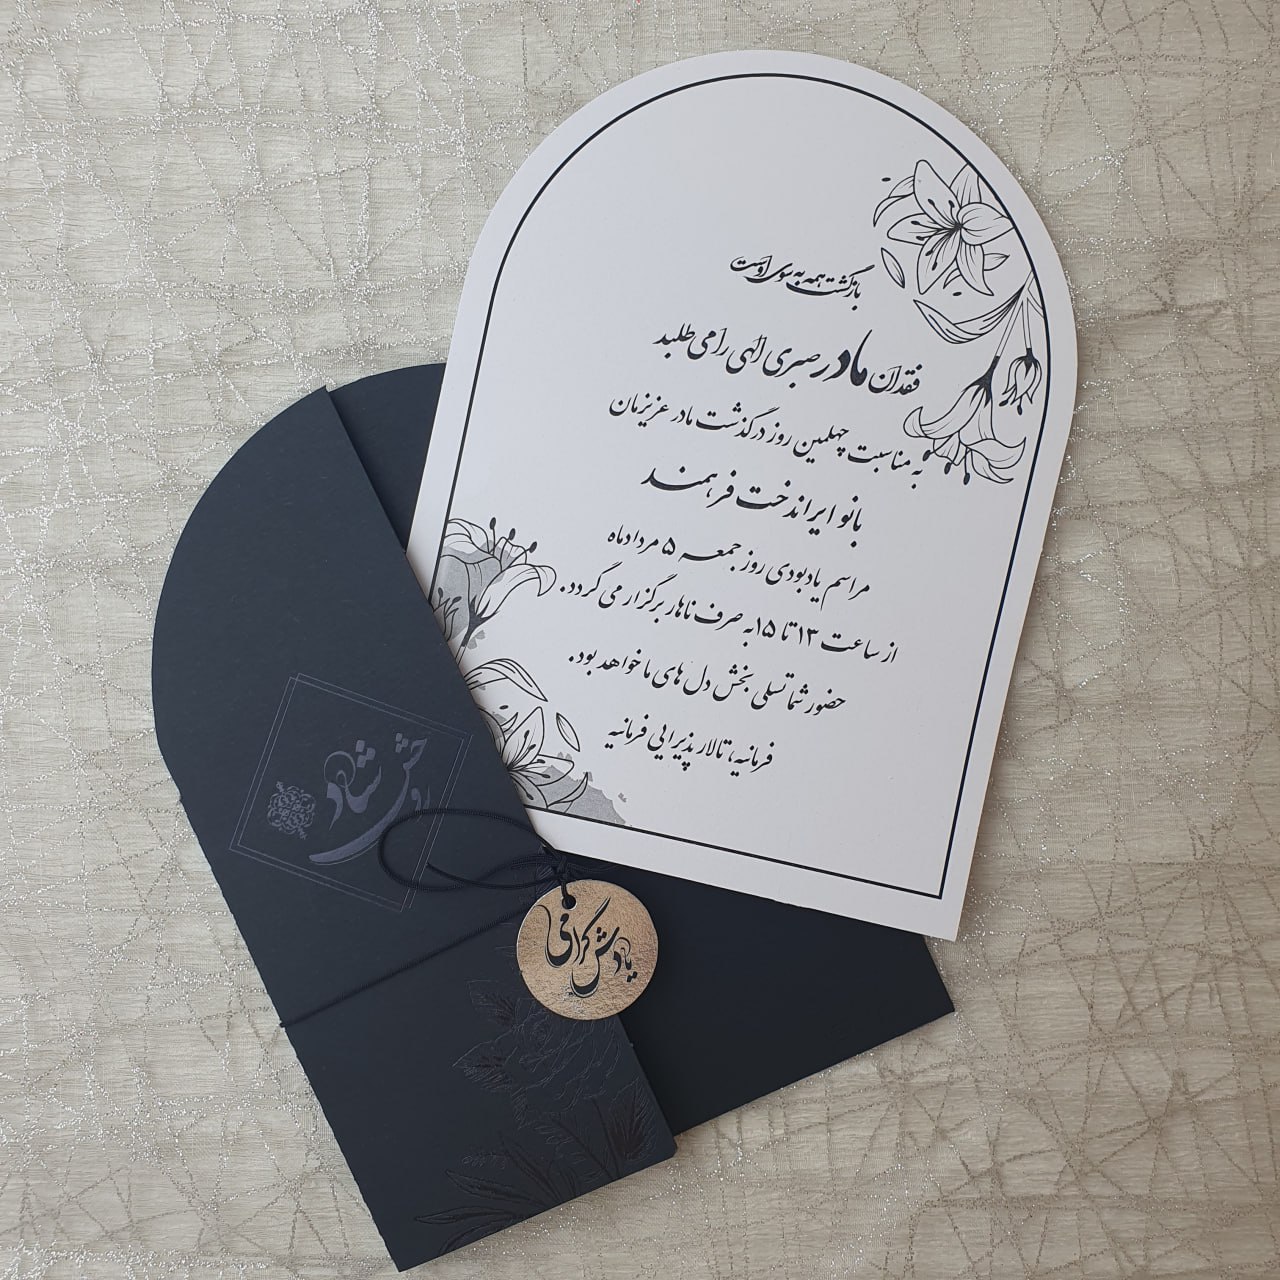 بازگشت همه به سوی اوست
فقدان مادر صبری الهی را می طلبد
به مناسبت چهلمین روز درگذشت مادر عزیزمان
بانو ایراندخت فرهمند
مراسم یادبودی روز جمعه ۵ مرداد ماه
از ساعت ۱۳ تا ۱۵ به صرف ناهار برگزار می گردد.
حضور شما تسلی بخش دل های ما خواهد بود.
فرمانیه، تالار پذیرایی فرمانیه
روحش شاد
یادش گرامی